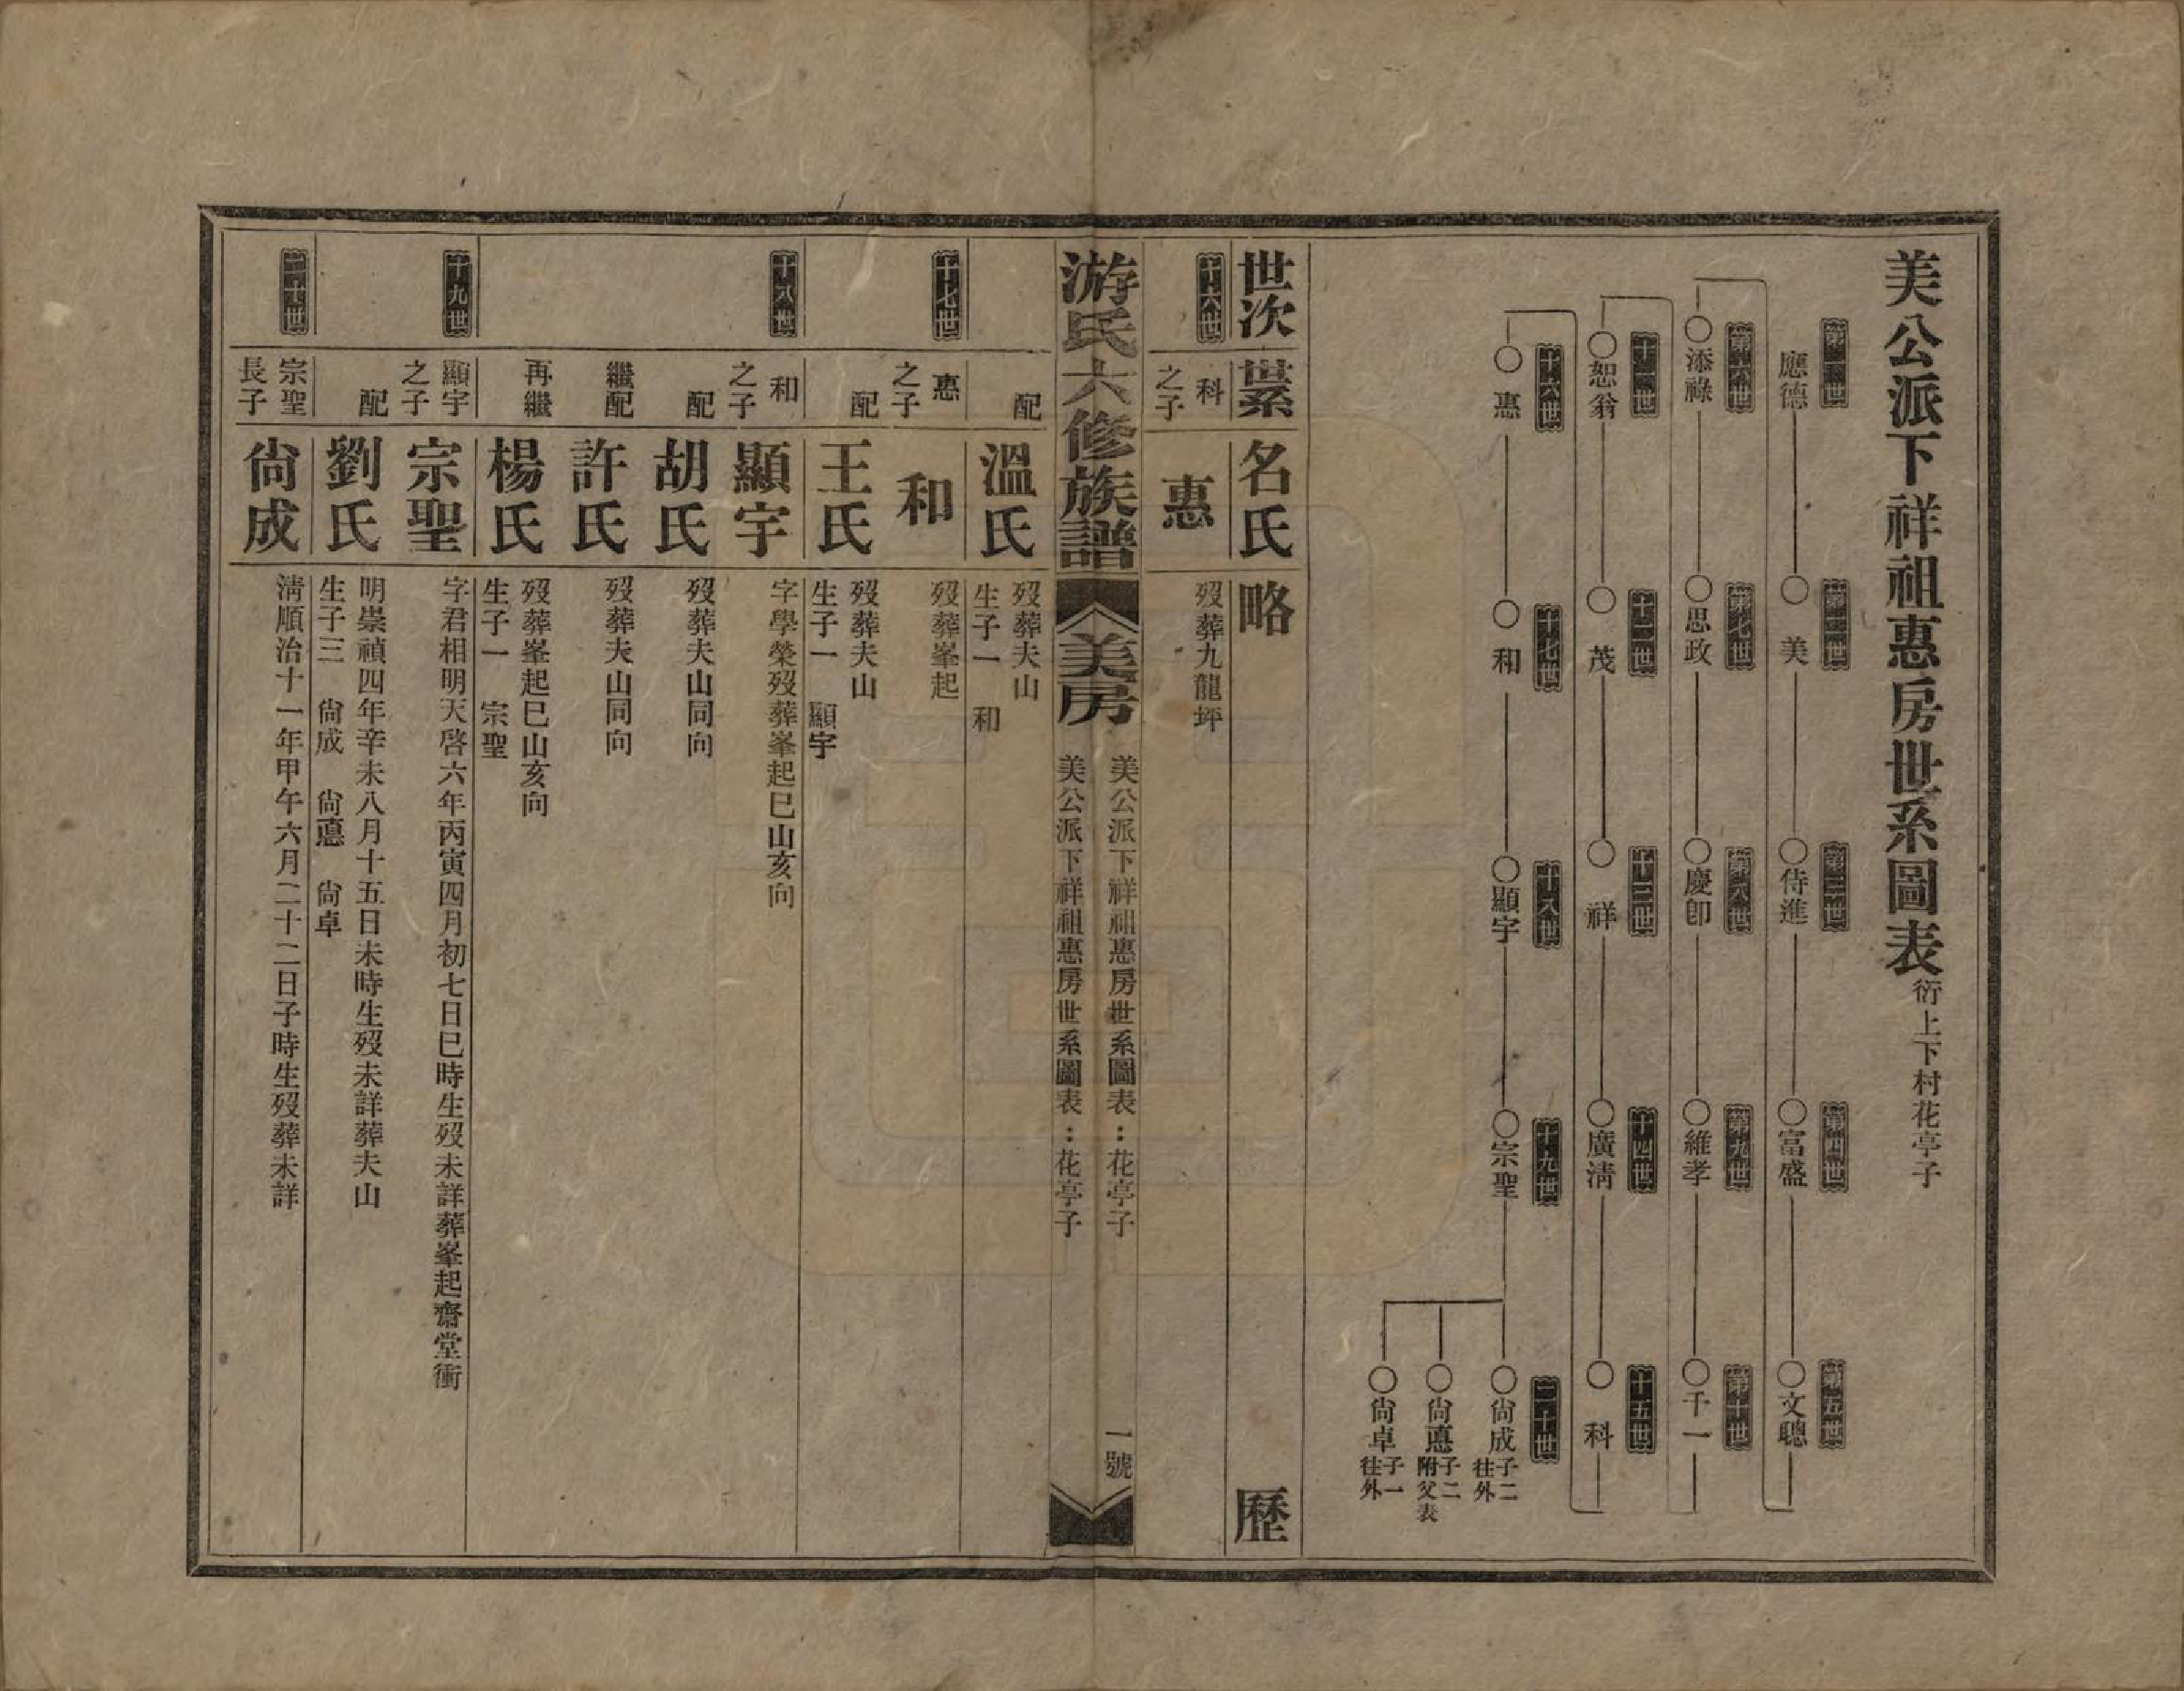 美公派下祥祖惠房世系圖表 衍上下村花亭子
第一世 應德
第二世 美
第三世 侍進
第四世 富盛
第五世 文聰
第六世 添祿
第七世 思政
第八世 慶卽
第九世 維孝
第十世 千一
十一世 恕翁
十二世 茂
十三世 祥
十四世 廣淸
十五世 科
十六世 惠
十七世 和
十八世 顯宇
十九世 宗聖
二十世 尙成 子二往外
尙悳 子二附父表
尙卓 子一往外
世次 世系 名氏 略 歷
十六世 科之子 惠 歿葬九龍坪
游氏六修族譜 美房 美公派下祥祖惠房世系圖表：花亭子 一號
美公派下祥祖惠房世系圖表：花亭子
配 溫氏 歿葬夫山
生子一 和
十七世 惠之子 和 歿葬峯起
配 王氏 歿葬夫山
生子一 顯宇
十八世 和之子 顯宇 字學榮歿葬峯起巳山亥向
配 胡氏 歿葬夫山同向
繼配 許氏 歿葬夫山同向
再繼 楊氏 歿葬峯起巳山亥向
生子一 宗聖
十九世 顯宇之子 宗聖 字君相明天啓六年丙寅四月初七日巳時生歿未詳葬峯起齋堂衝
配 劉氏 明崇禎四年辛未八月十五日未時生歿未詳葬夫山
生子三 尙成 尙悳 尙卓
二十世 宗聖長子 尙成 淸順治十一年甲午六月二十二日子時生歿葬未詳